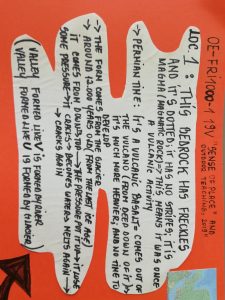 OE-FRI1000-1 19V "SENSE OF PLACE" AND
OUTDOOR TEACHING, 2019
LOC. 1: THIS BEDROCK HAS FRECKLES
AND IT'S DOTTED; IT HAS NO STRIPES; IT IS
MAGMA (MAGMATIC ROCK) → THIS MEANS IT WAS ONCE
A VULCANIC ACTIVITY
→ PERMIAN TIME: IT'S A VULCANIC BASALT → COMES OUT OF
THE VULCANO FROM DEEP DOWN OF IT →
IT'S MUCH MORE DIFFERENT, FROM DOWN TIME TO
UP
→ THE FORM COMES FROM THE GLACIER
→ AROUND 12.000 YEARS AGO, FROM THE LAST ICE AGE/
IT COMES FROM DOWN & TOP → THE PRESSURE PUT IT UP → IT LOSE
SOME PRESSURE → IT CRACKS & BECOMES WATER & MELTS AGAIN →
→ CRACKS AGAIN
(VALLEY FORMED LINE V IS FORMED BY RIVER)
(VALLEY FORMED LINE U IS FORMED BY GLACIER)